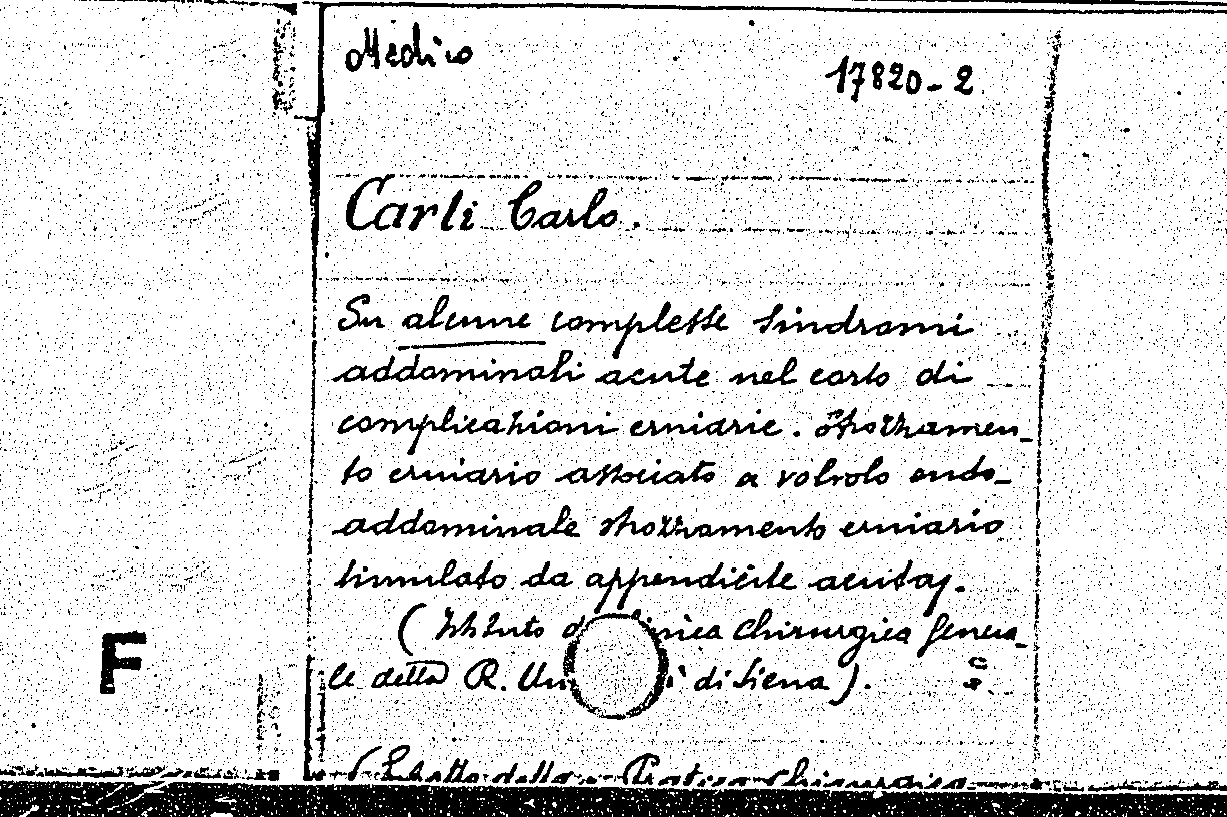 Medico
17820-2
Carli Carlo.
Su alcune complesse sindromi
addominali acute nel corso di
complicazioni erniarie. Strozzamen-
to erniario associato a volvolo endo-
addominale strozzamento erniario
simulato da appendicite acuta.
(Istituto di Clinica Chirurgica Genera-
le della R. Un ì di Siena).
F
(Estratto dalla Pratica Chirurgica